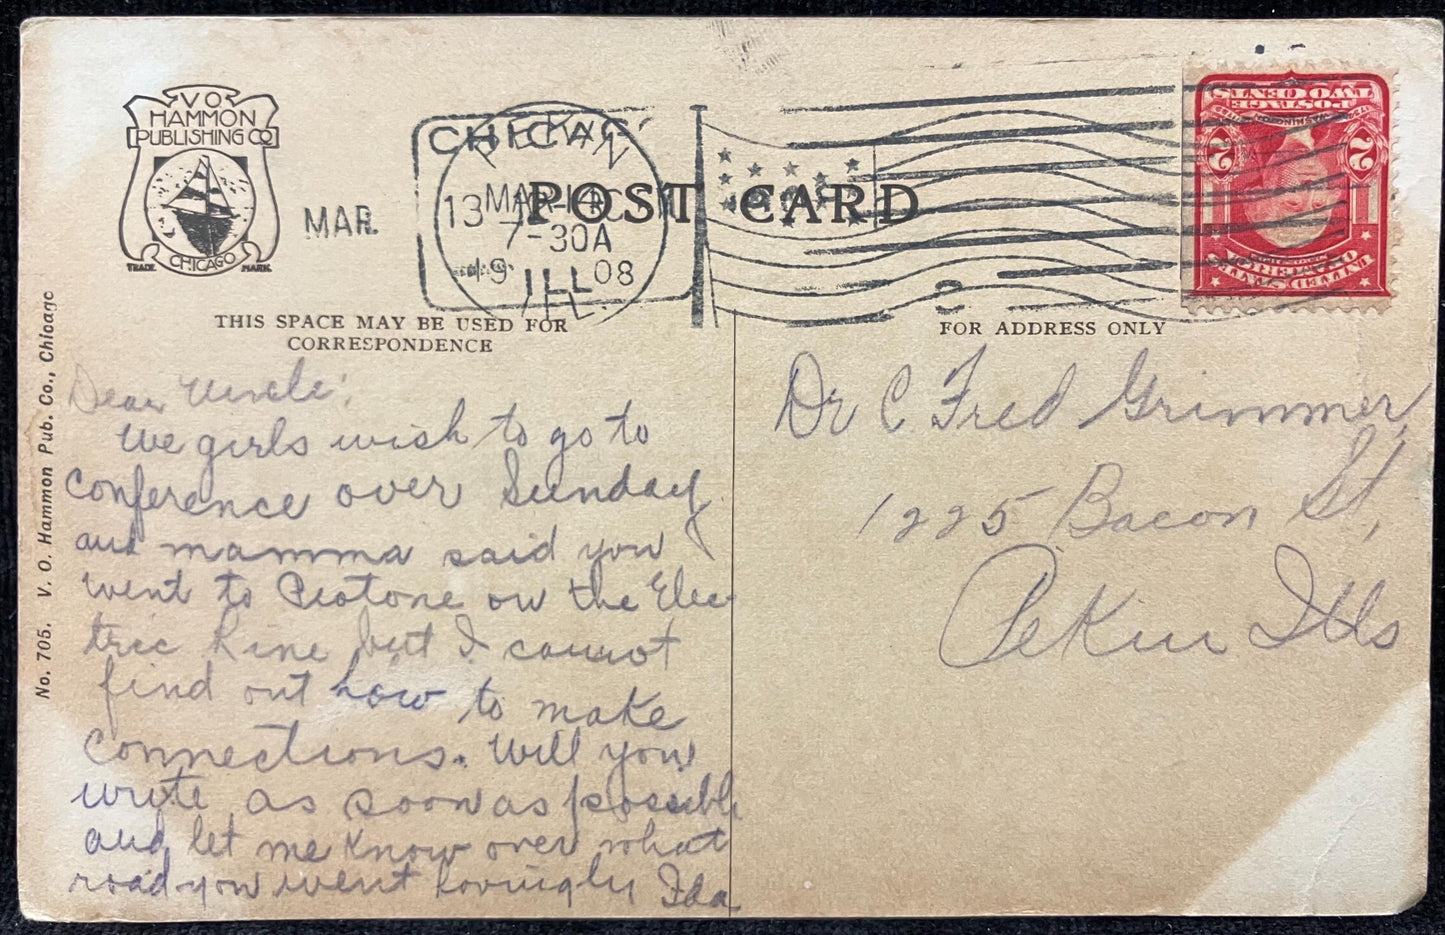 V O
HAMMON
PUBLISHING CO
TRADE MARK
CHICAGO
MAR.
CHICAGO
PEKIN
13 MAR 14
7-30A
19 08
ILL
ILL.
1908
POST CARD
THIS SPACE MAY BE USED FOR
CORRESPONDENCE
FOR ADDRESS ONLY
No. 705. V. O. Hammon Pub. Co., Chicago
UNITED STATES OF AMERICA
WASHINGTON
2 2
POSTAGE
TWO CENTS
Dear Uncle:
We girls wish to go to
conference over Sunday
and mamma said you
went to Peotone on the Elec-
tric Line but I cannot
find out how to make
connections. Will you
write as soon as possible
and let me know over what
road you went Lovingly Ida
Dr C Fred Grimmer,
1225 Bacon St,
Pekin Ills